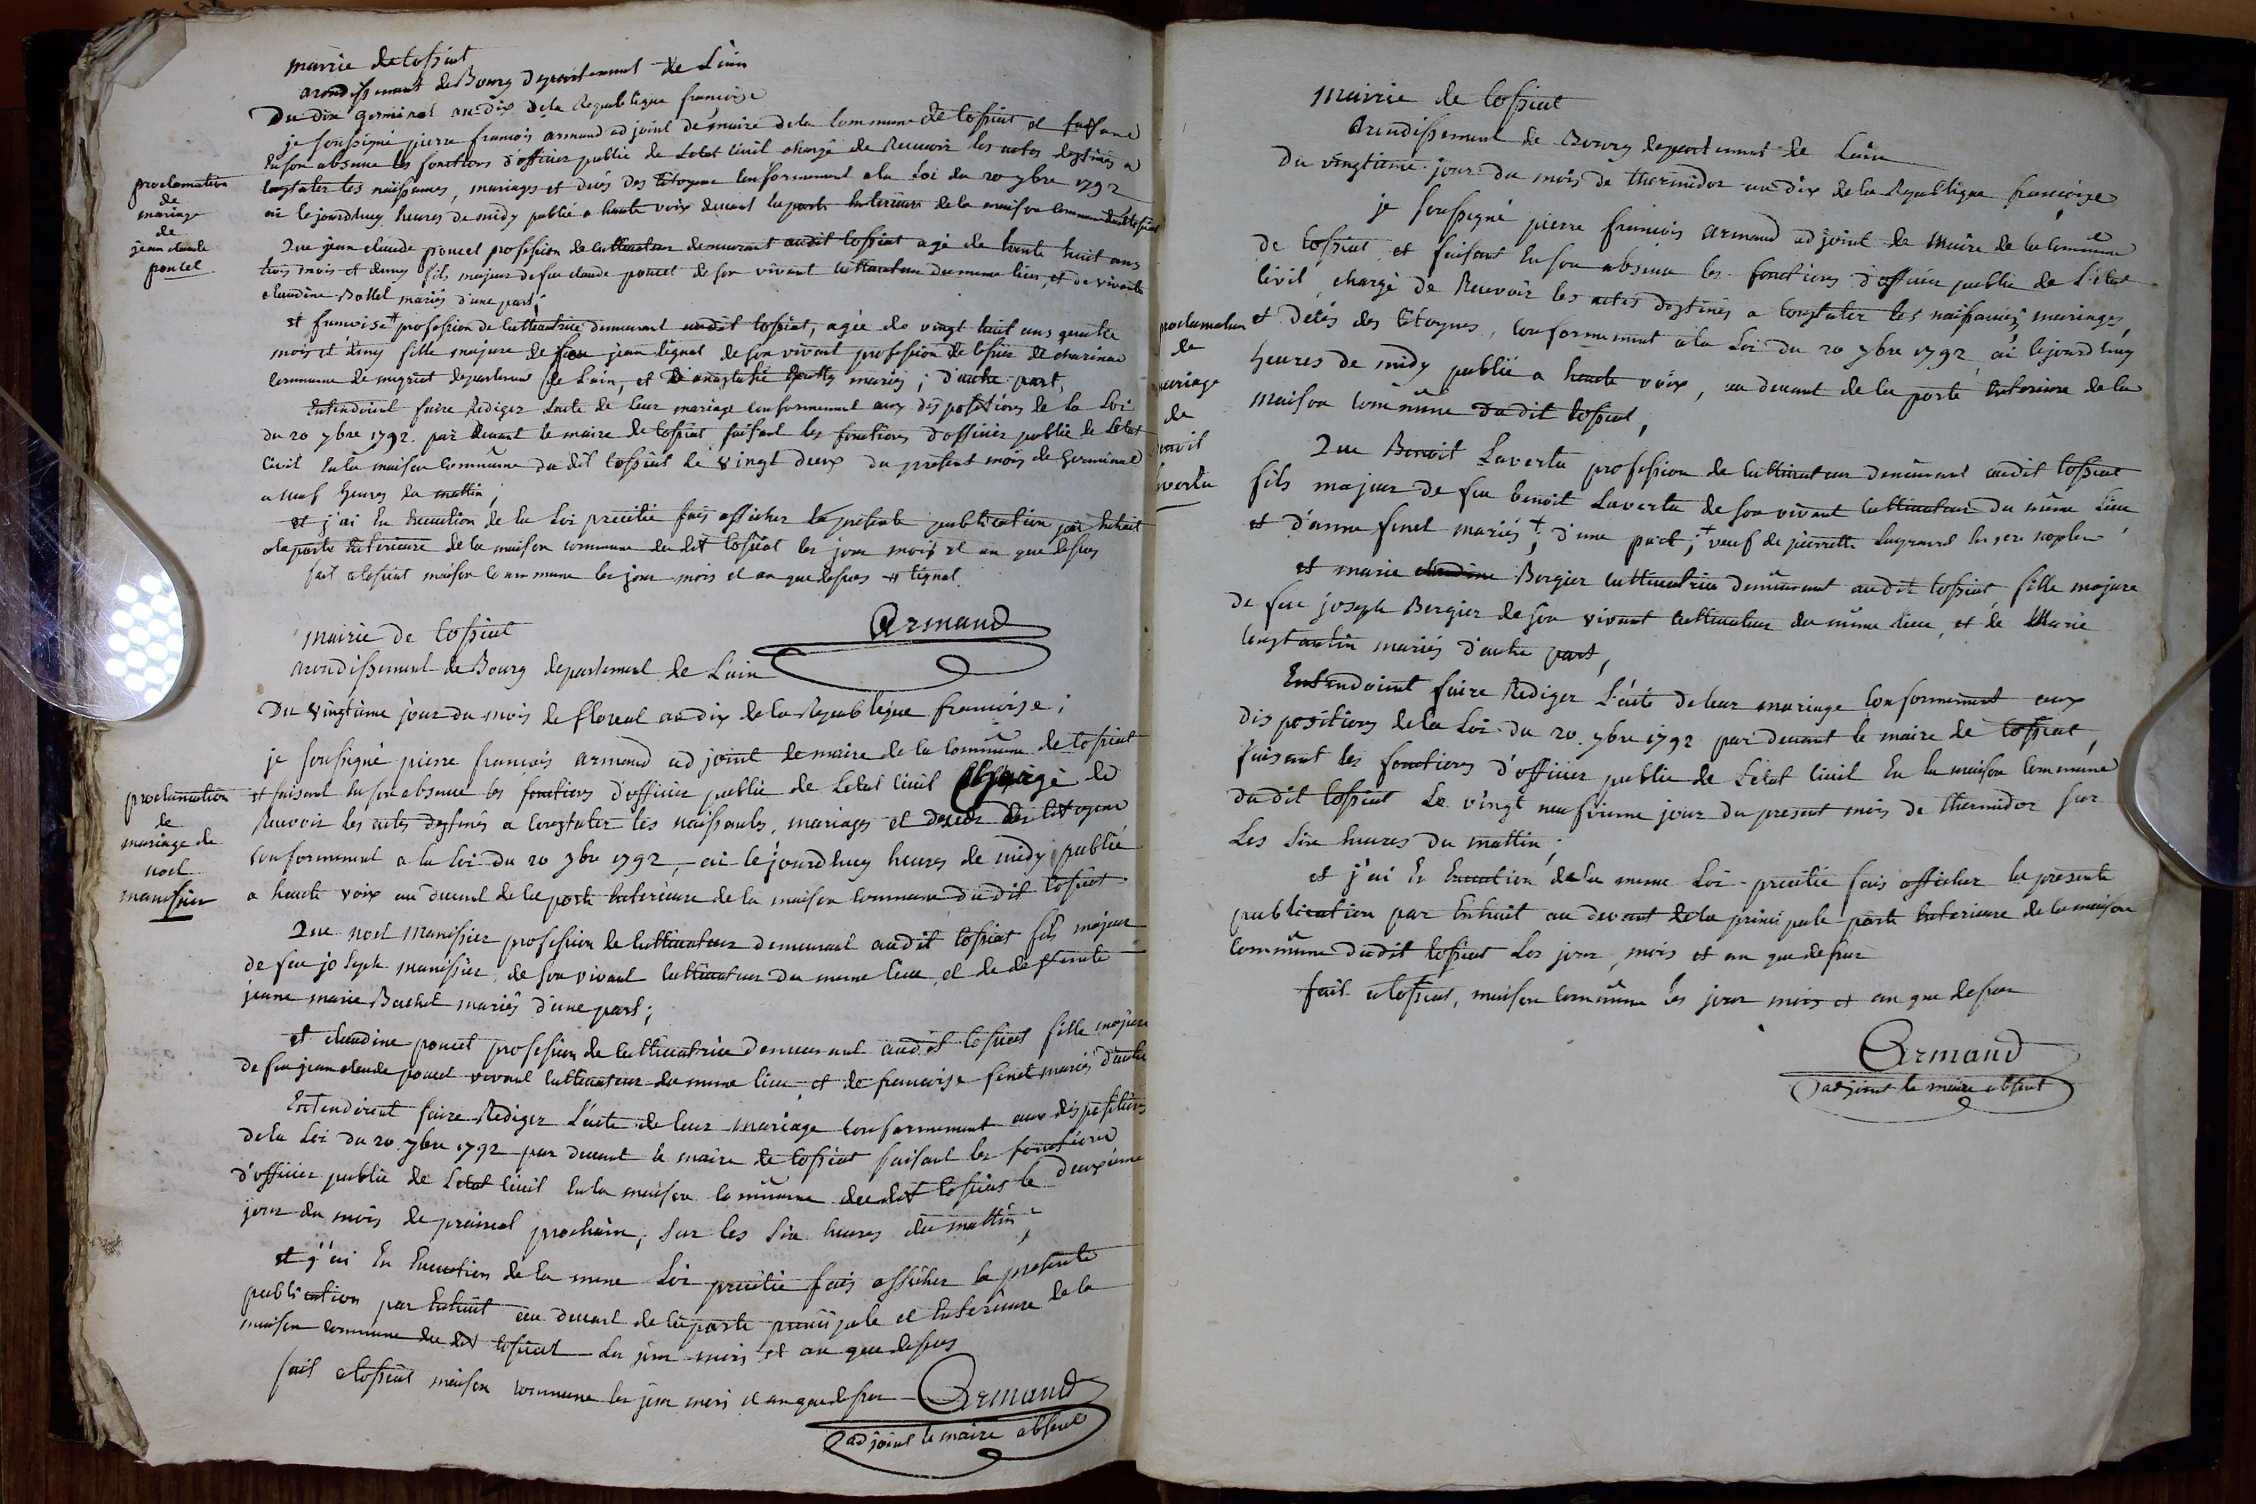 mairie de tossiat
arondissement de Bourg departement de Lain
Du dix germinal an dix de la Republique francoise
je soussigné pierre francois armand adjoint de maire de la commune de tossiat et faisant
En son absence les fonctions d'officier public de Letat civil chargé de Recevoir les actes destinés a
constater les naissances, mariages et decés des Citoyens conformement a la Loi du 20 7bre 1792
ai le jourdhuy heures de midy publié a haute voix devant la porte Exterieure de la maison commune dudit tossiat
proclamation
de
mariage
de
jean claude
poncet
Que jean claude poncet profession de cultivateur demeurant audit tossiat agé de trente huit ans
trois mois et demy fils majeur de feu claude poncet de son vivant cultivateur du meme lieu, et de vivante
claudine Bollet mariés d'une part;
et francoise + profession de cultivatrice demeurant audit tossiat, agée de vingt huit ans quatre
mois et demy fille majeure de feu jean tignat de son vivant profession de
commune de departement de Lain, et d'anastasie mariés; d'autre part,
Entendoient faire Rediger Lacte de leur mariage conformement aux dispositions de la Loi
du 20 7bre 1792 par devant le maire de tossiat faisant les fonctions d'officier public de Letat
Civil En la maison Commune du dit tossiat le vingt deux du present mois de germinal
a neuf heures du mattin;
et j'ai En Execution de la Loi precitée fais afficher la presente publication par Extrait
a la porte Exterieure de la maison commune du dit tossiat les jour mois et an que dessus
fait a tossiat maison commune les jour mois et an que dessus + tignat
Armand
mairie de tossiat
arondissement de Bourg departement de Lain
Du vingtième jour du mois de floreal an dix de la Republique francoise;
je soussigné pierre francois armand adjoint de maire de la commune de tossiat
et faisant En son absence les fonctions d'officier public de Letat civil chargé de
Recevoir les actes destinés a constater les naissances, mariages et deces des citoyens
conformement a la Loi du 20 7bre 1792, ai le jourdhuy heures de midy publié
a haute voix au devant de la porte Exterieure de la maison commune dudit tossiat
proclamation
de
mariage de
noel
manissier
Que noel Manissier profession de cultivateur demeurant audit tossiat fils majeur
de feu joseph manissier de son vivant cultivateur du meme lieu, et de defunte
jeanne marie Bachet mariés d'une part;
et claudine poncet profession de cultivatrice demeurant audit tossiat fille majeure
de feu jean claude poncet vivant cultivateur du meme lieu, et de francoise finet mariés d'autre
Entendoient faire Rediger Lacte de leur mariage conformement aux dispositions
de la Loi du 20 7bre 1792 par devant le maire de tossiat faisant les fonctions
d'officier public de Letat Civil En la maison commune du dit tossiat le deuxieme
jour du mois de prairial prochain, sur les six heures du mattin;
et j'ai En Execution de la meme Loi precitée fais afficher la presente
publication par Extrait au devant de la porte principale et Exterieure de la
maison commune du dit tossiat les jour mois et an que dessus
fait a tossiat maison commune les jour mois et an que dessus Armand
adjoint le maire absent
Mairie de tossiat
Arondissement de Bourg departement de Lain
Du vingtieme jour du mois de thermidor an dix de la Republique françoise
je soussigné pierre francois armand adjoint de Maire de la Commune
de tossiat et faisant En son absence les fonctions d'officier public de L'état
civil, chargé de Recevoir les actes destinés a constater les naissances, mariages
et décés des Citoyens, conformement a la Loi du 20 7bre 1792, ai lejourdhuy
heures de midy publié a haute voix, au devant de la porte Exterieure de la
maison commune dudit tossiat,
proclamation
de
mariage
de
Benoit
Laverta
Que Benoit Laverta profession de cultivateur demeurant audit tossiat
fils majeur de feu benoit Laverta de son vivant cultivateur du même lieu
et d'anne finet mariés +, d'une part; + veuf de pierrette
et marie claudine Bergier cultivatrice demeurant audit tossiat, fille majeure
de feu joseph Bergier de son vivant cultivateur du même lieu, et de Marie
constantin mariés d'autre part,
Entendoient faire Rediger L'acte de leur mariage conformement aux
dispositions de la Loi du 20 7bre 1792 par devant le maire de tossiat,
faisant les fonctions d'officier public de L'état Civil En la maison commune
dudit tossiat Le vingt neufvieme jour du present mois de thermidor sur
les six heures du mattin;
et j'ai En Execution de la meme Loi precitée fais afficher la presente
publication par Extrait au devant de la principale porte Exterieure de la maison
commune dudit tossiat les jour, mois et an que dessus
fait a tossiat, maison commune les jour mois et an que dessus
Armand
adjoint le maire absent